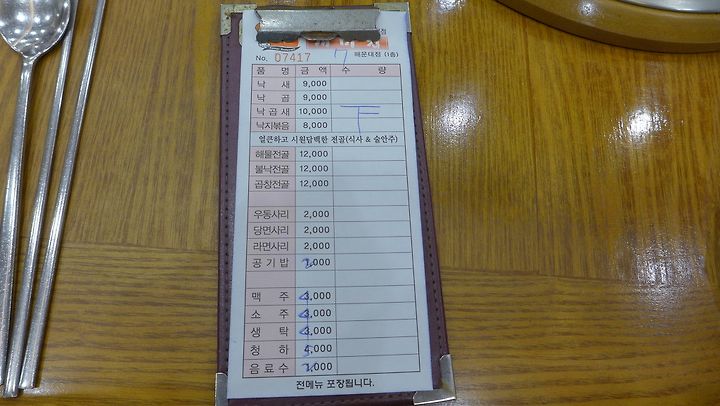 No. 07417 7 해운대점 (1층)
품 명 금 액 수 량
낙 새 9,000
낙 곱 9,000
낙곱새 10,000 下
낙지볶음 8,000
얼큰하고 시원담백한 전골(식사 & 술안주)
해물전골 12,000
불낙전골 12,000
곱창전골 12,000
우동사리 2,000
당면사리 2,000
라면사리 2,000
공기밥 2,000
맥 주 4,000
소 주 4,000
생 탁 4,000
청 하 5,000
음료수 2,000
전메뉴 포장됩니다.